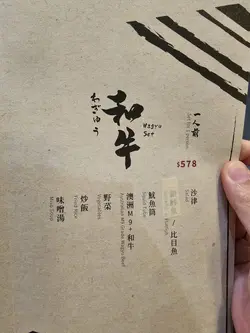 一人前
Set for 1 person
和牛
わぎゅう
Wagyu
Set
$578
沙津
Salad
/ 比目魚
魷魚筒
Squid Tube
澳洲M9+和牛
Australian M9 Grade Wagyu Beef
野菜
Vegetables
炒飯
Fried Rice
味噌湯
Miso Soup